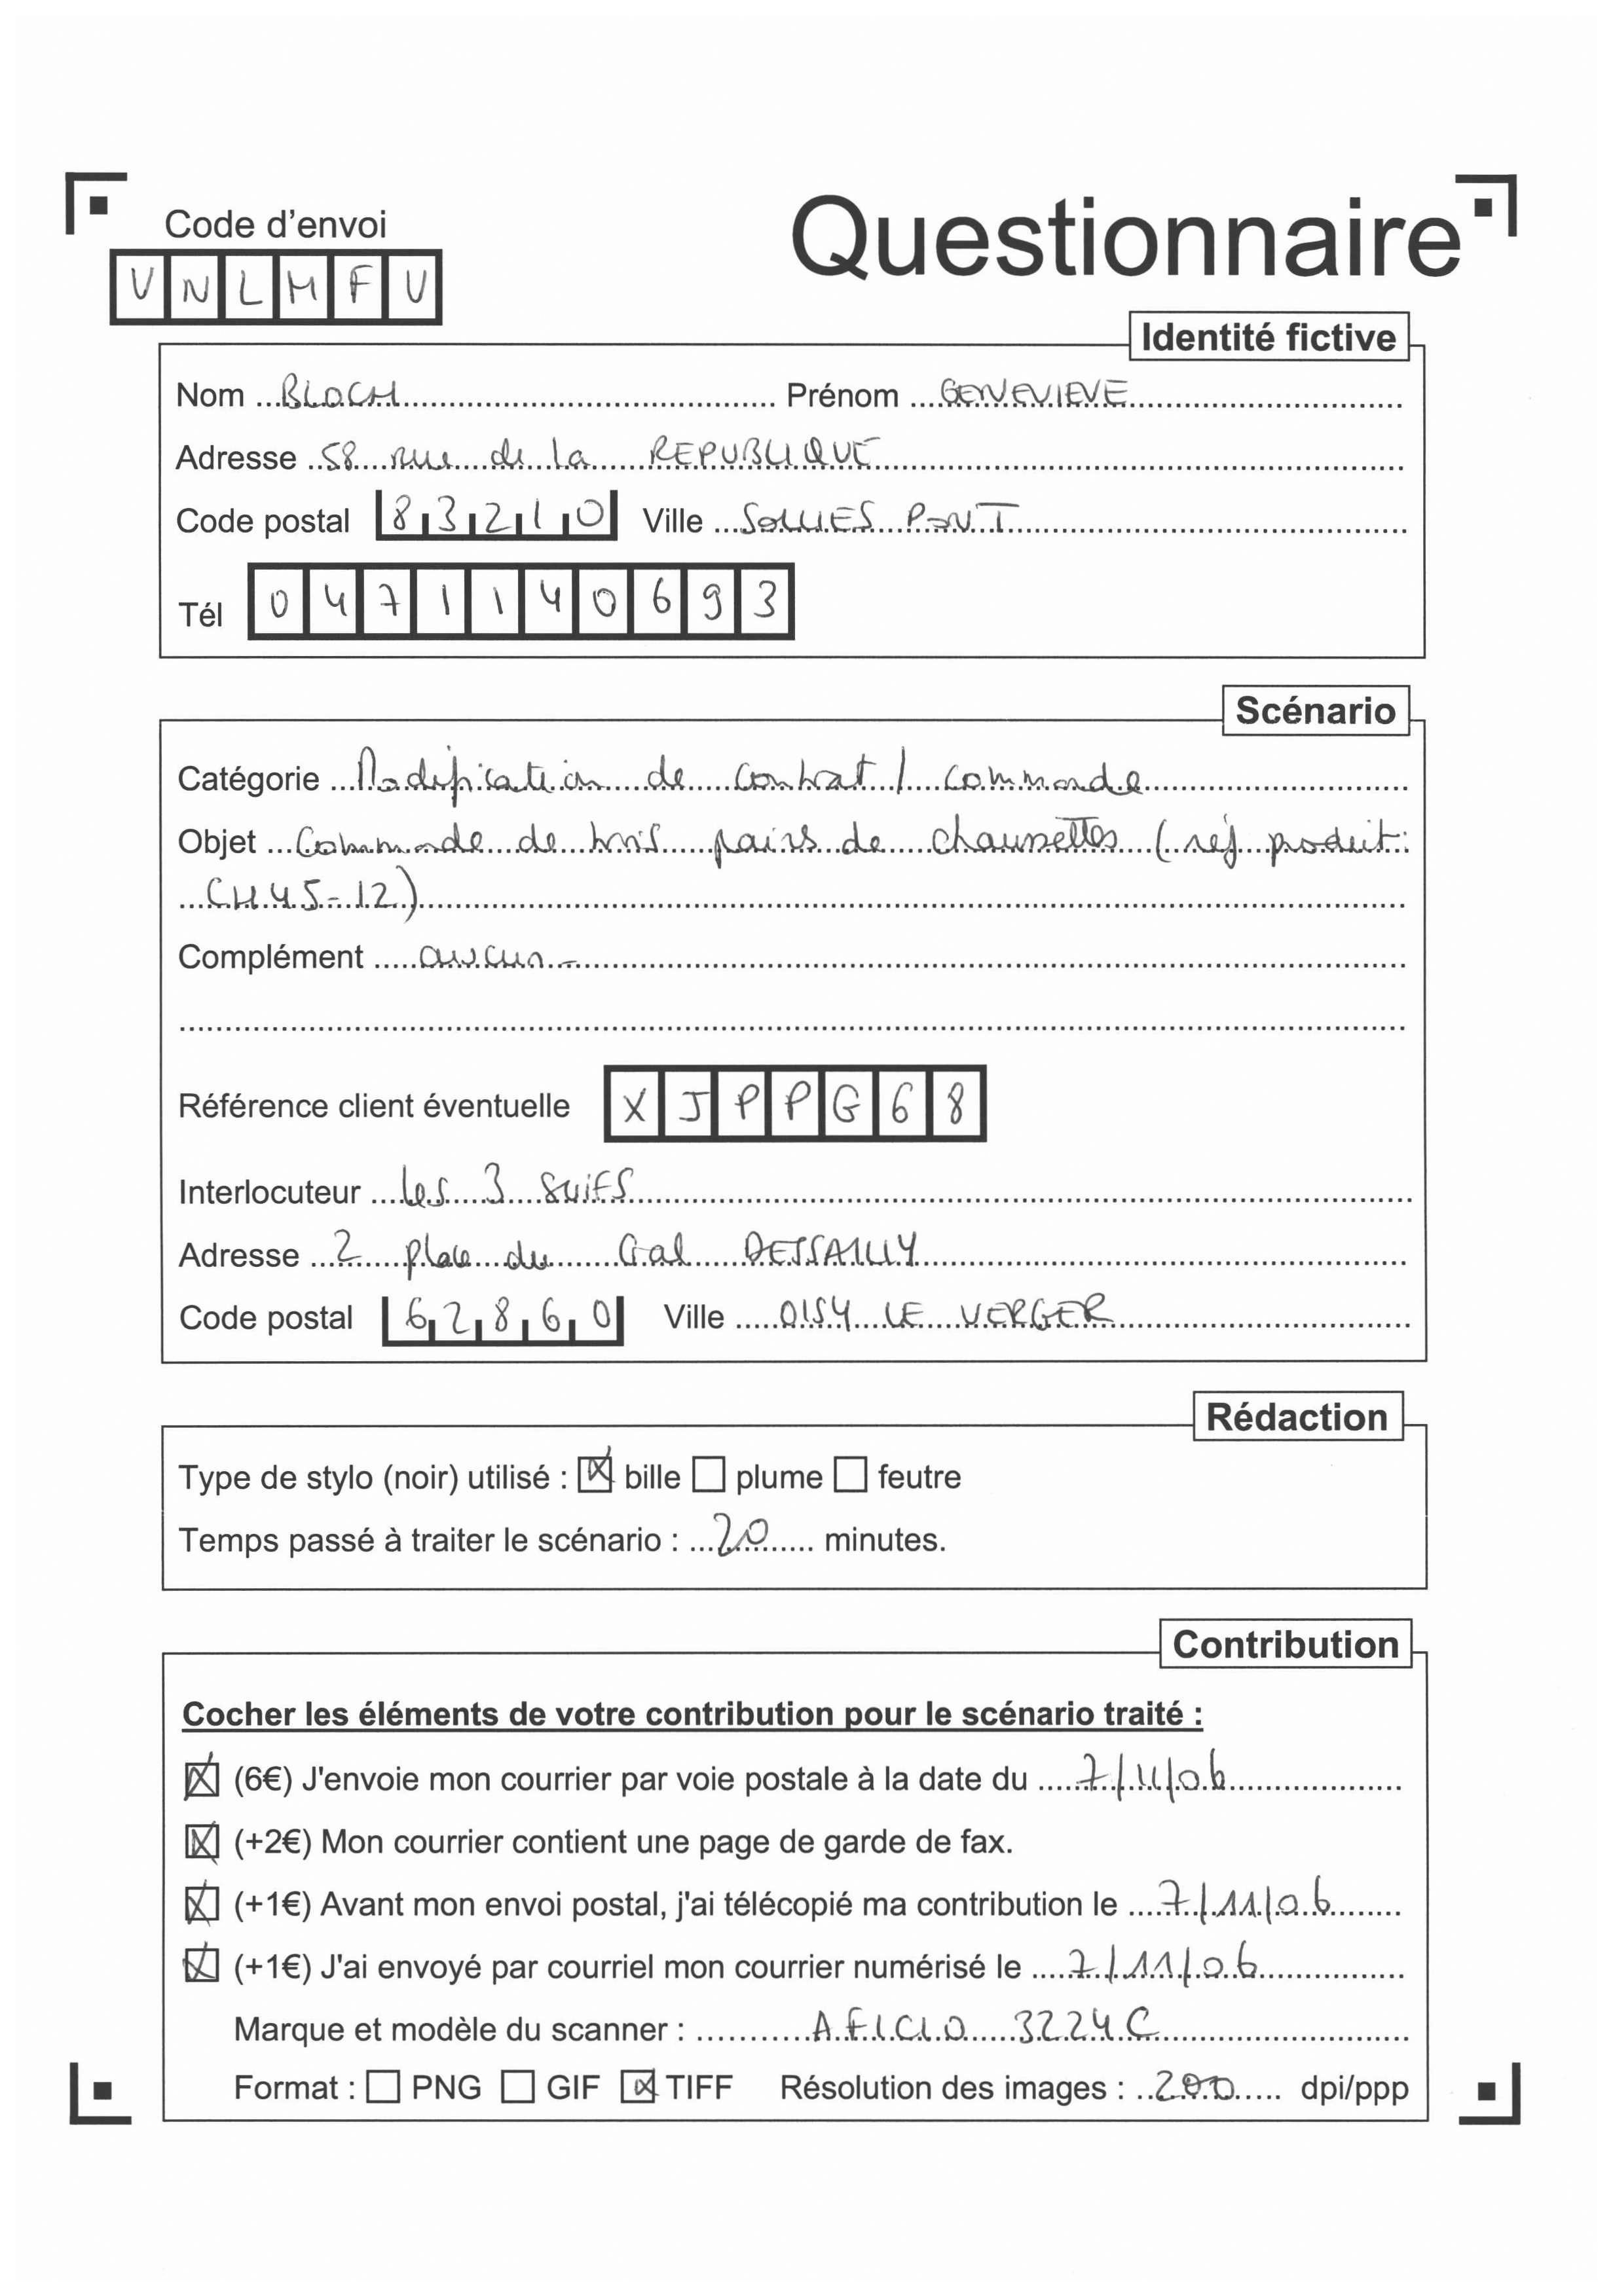 Code d'envoi
Questionnaire
V N L M F U
Identité fictive
Nom BLOCH Prénom GENEVIEVE
Adresse 58 rue de la REPUBLIQUE
Code postal 83210 Ville SOLLIES PONT
Tél 0471140693
Scénario
Catégorie Modification de contrat / commande
Objet Commande de trois paires de chaussettes (réf produit :
CH45-12)
Complément aucun -
Référence client éventuelle XJPPG68
Interlocuteur les 3 SUIFS
Adresse 2 place du Gal DESSAILLY
Code postal 62860 Ville OISY LE VERGER
Rédaction
Type de stylo (noir) utilisé : ☒ bille ☐ plume ☐ feutre
Temps passé à traiter le scénario : 20 minutes.
Contribution
Cocher les éléments de votre contribution pour le scénario traité :
☒ (6€) J'envoie mon courrier par voie postale à la date du 7/11/06
☒ (+2€) Mon courrier contient une page de garde de fax.
☒ (+1€) Avant mon envoi postal, j'ai télécopié ma contribution le 7/11/06
☒ (+1€) J'ai envoyé par courriel mon courrier numérisé le 7/11/06
Marque et modèle du scanner : AFICIO 3224C
Format : ☐ PNG ☐ GIF ☒ TIFF Résolution des images : 200 dpi/ppp